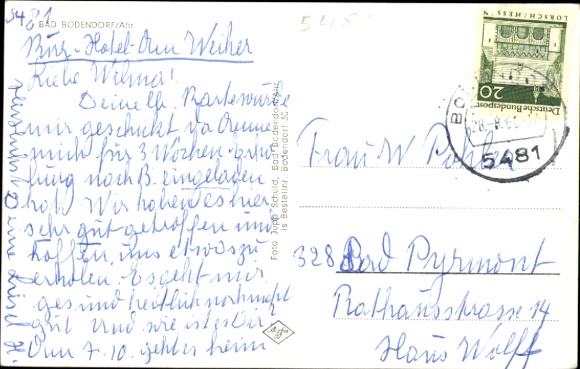 5481
BAD BODENDORF/Ahr
Kur-Hotel-Am Weiher
Liebe Wilma!
Deine lb. Karte wurde
mir geschickt, da
mich für 3 Wochen
nach B. eingeladen
hat. Wir haben es hier
sehr gut getroffen und
hoffen, uns etwas zu
erholen. Es geht mir
gesundheitlich noch nicht
gut. Und wie ist es Dir?
Am 7.10. geht es heim
Deine
Foto Jupp Schuld, Bad Bodendorf/Ahr
Bestellnr. Bodendorf 30
548
LORSCH/HESS'N
Deutsche Bundespost
20
5481
Frau W
328 Bad Pyrmont
Rathausstrasse 14
Haus Wolff